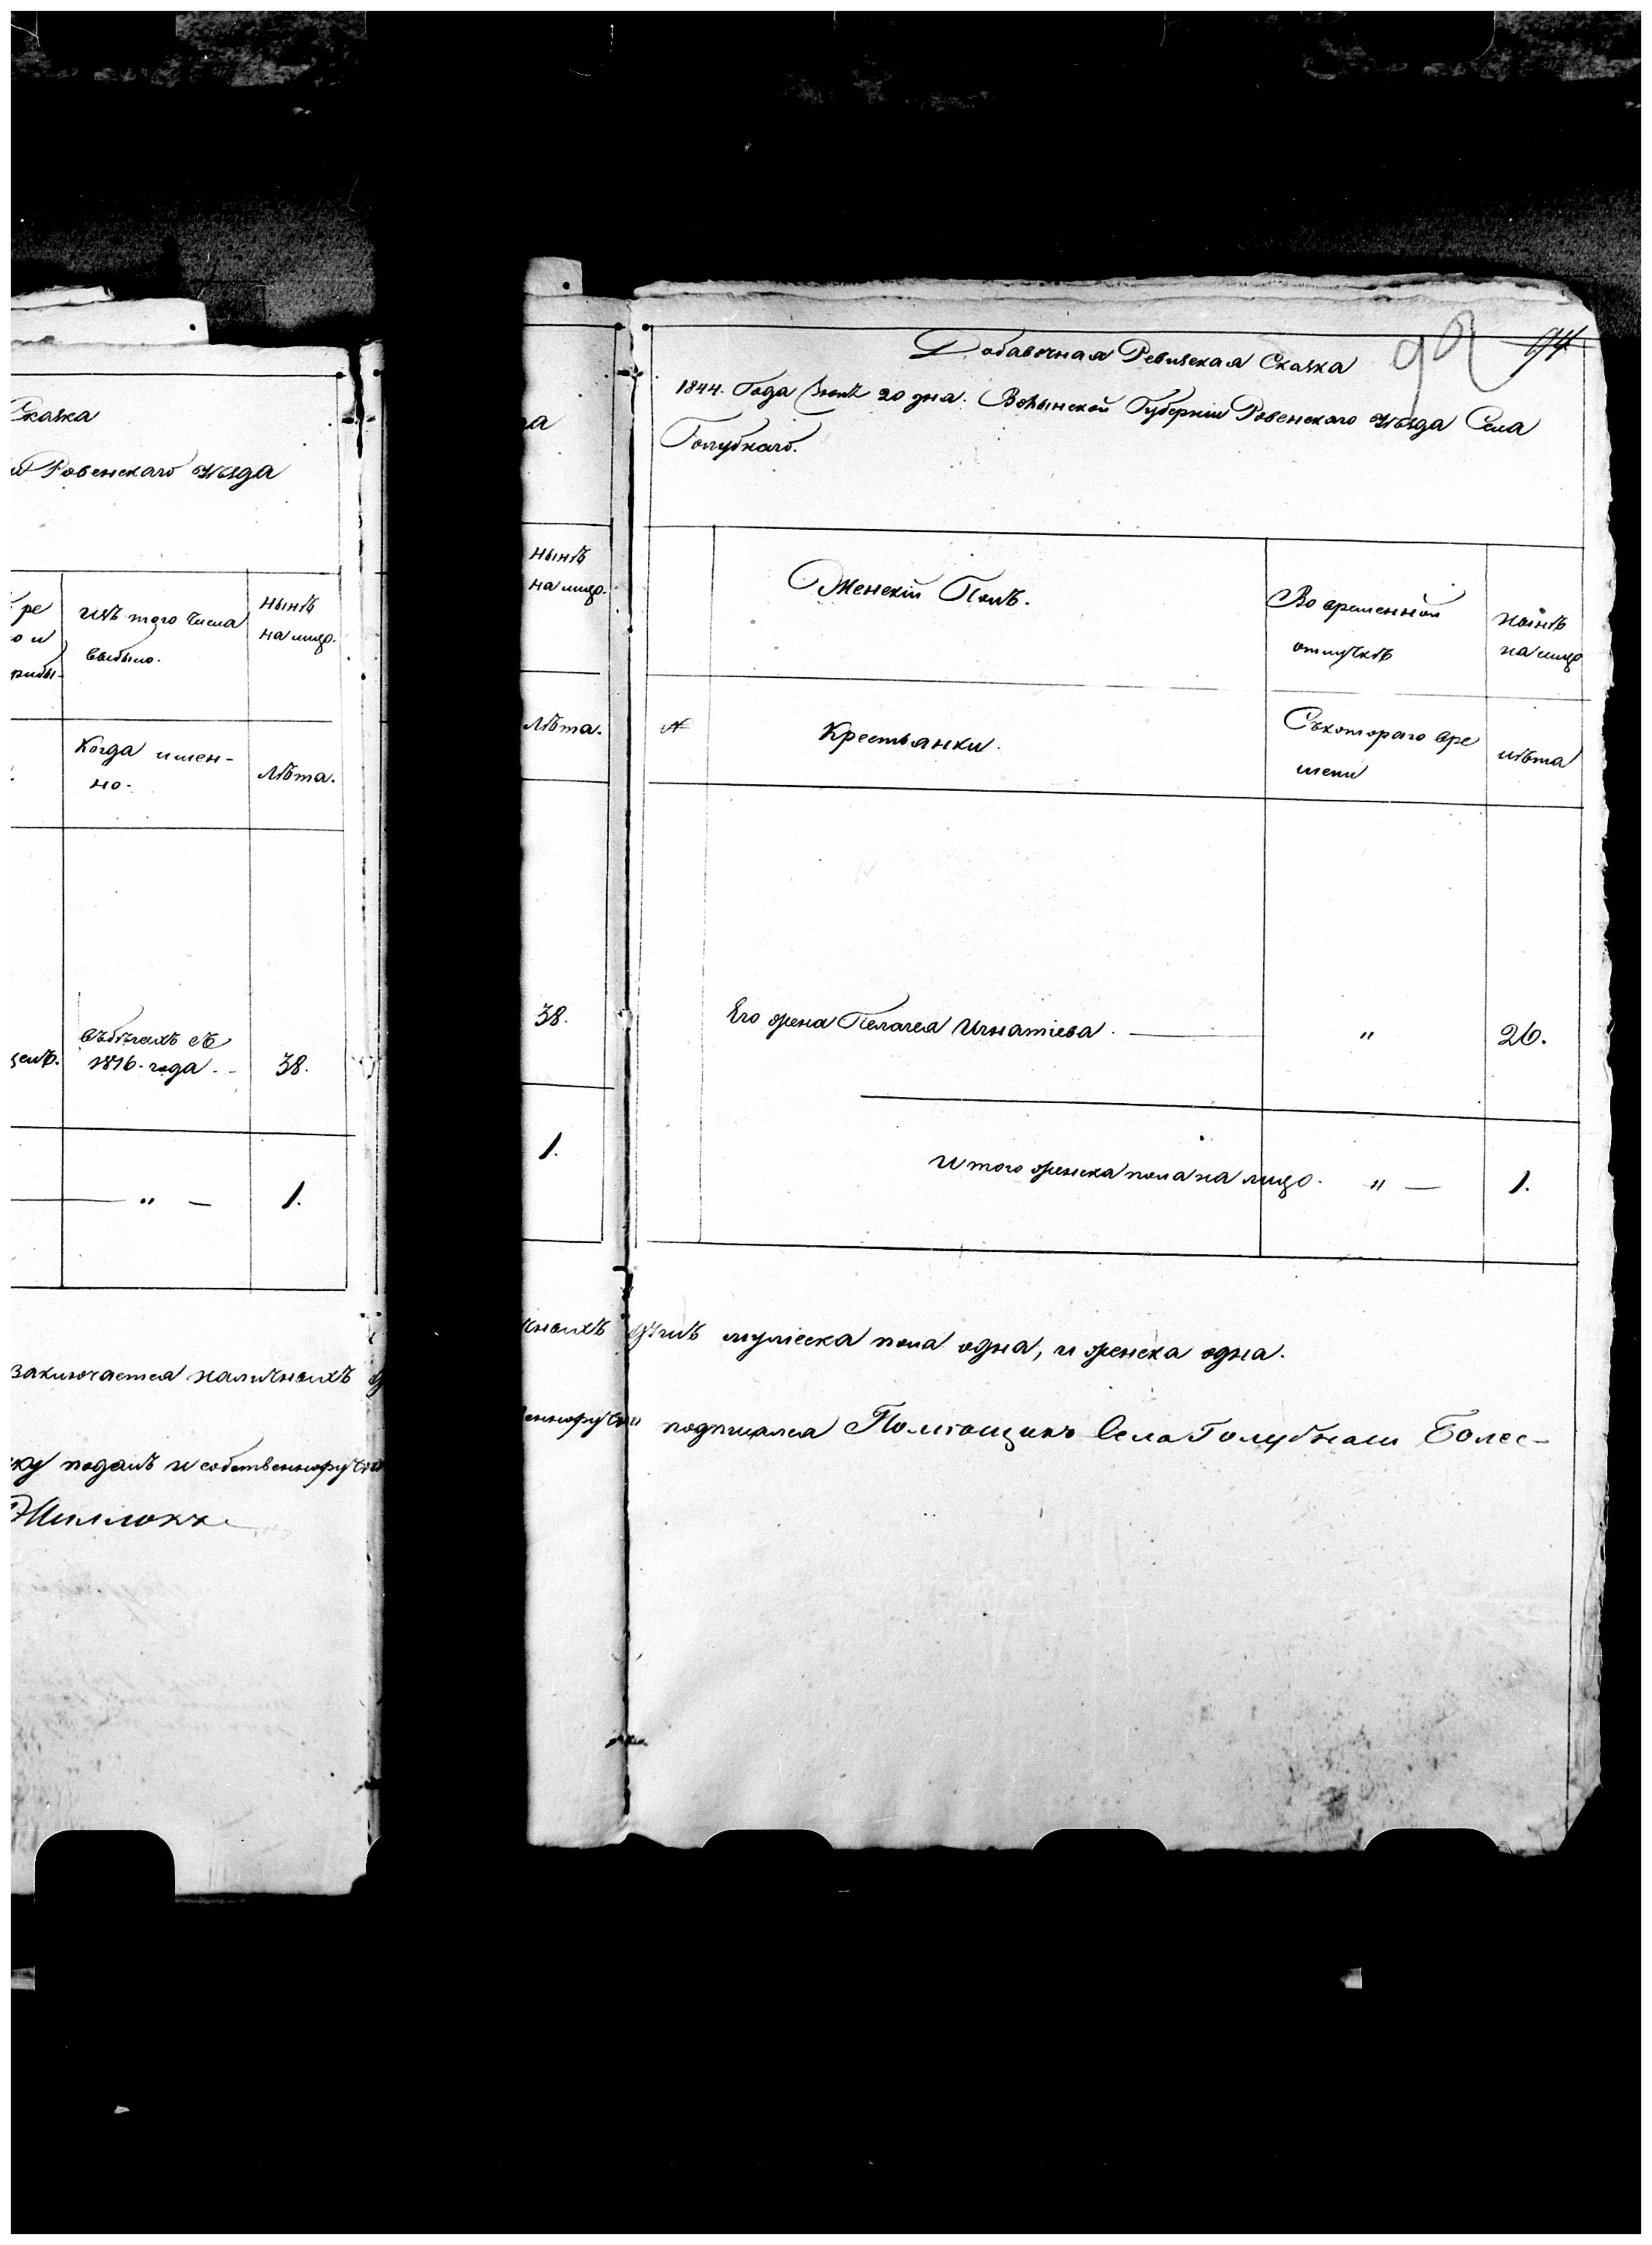 Сказка
Ровенскаго Уѣзда
ре
о и
рибы-
Изъ того Числа
выбыло.
нынѣ
на лицо.
Когда имен-
но.
Лѣта.
въ бѣгахъ съ
1816. года.
38.
" —
1.
заключается наличныхъ
ку подалъ и собственноручно
нынѣ
на лицо.
Лѣта.
38.
1.
94
Добавочная Ревизская Сказка
1844. Года 20 дна. Волынской Губерніи Ровенскаго Уѣзда Села
Голубнаго.
Женскій Полъ.
Во временной
отлучкѣ
нынѣ
на лицо
№
Крестьянки.
Съ котораго вре
мени
лѣта
Его жена Пелагея Игнатіева.
"
26.
Итого женска пола на лицо.
" —
1.
чныхъ душъ мужеска пола одна, и женска одна.
енноручно подписался Помѣщикъ Села Голубнаго Болес-